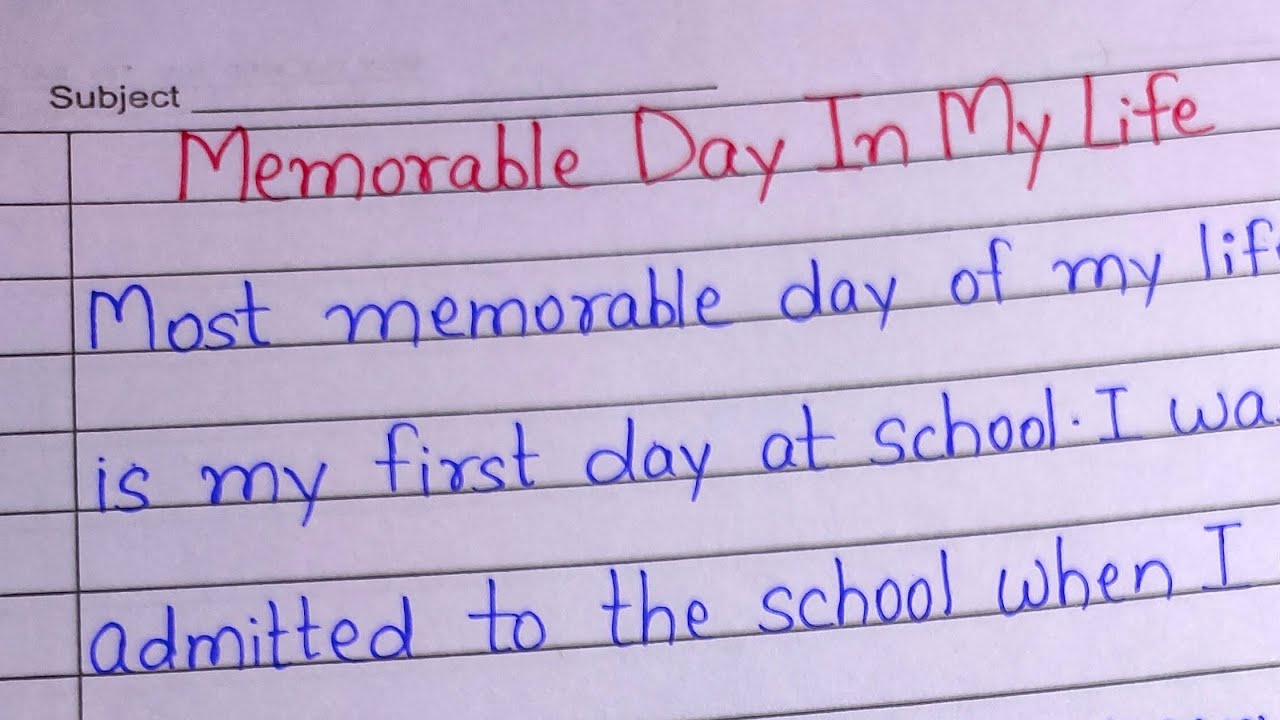 Subject
Memorable Day In My Life
Most memorable day of my lif
is my first day at school. I wa
admitted to the school when I